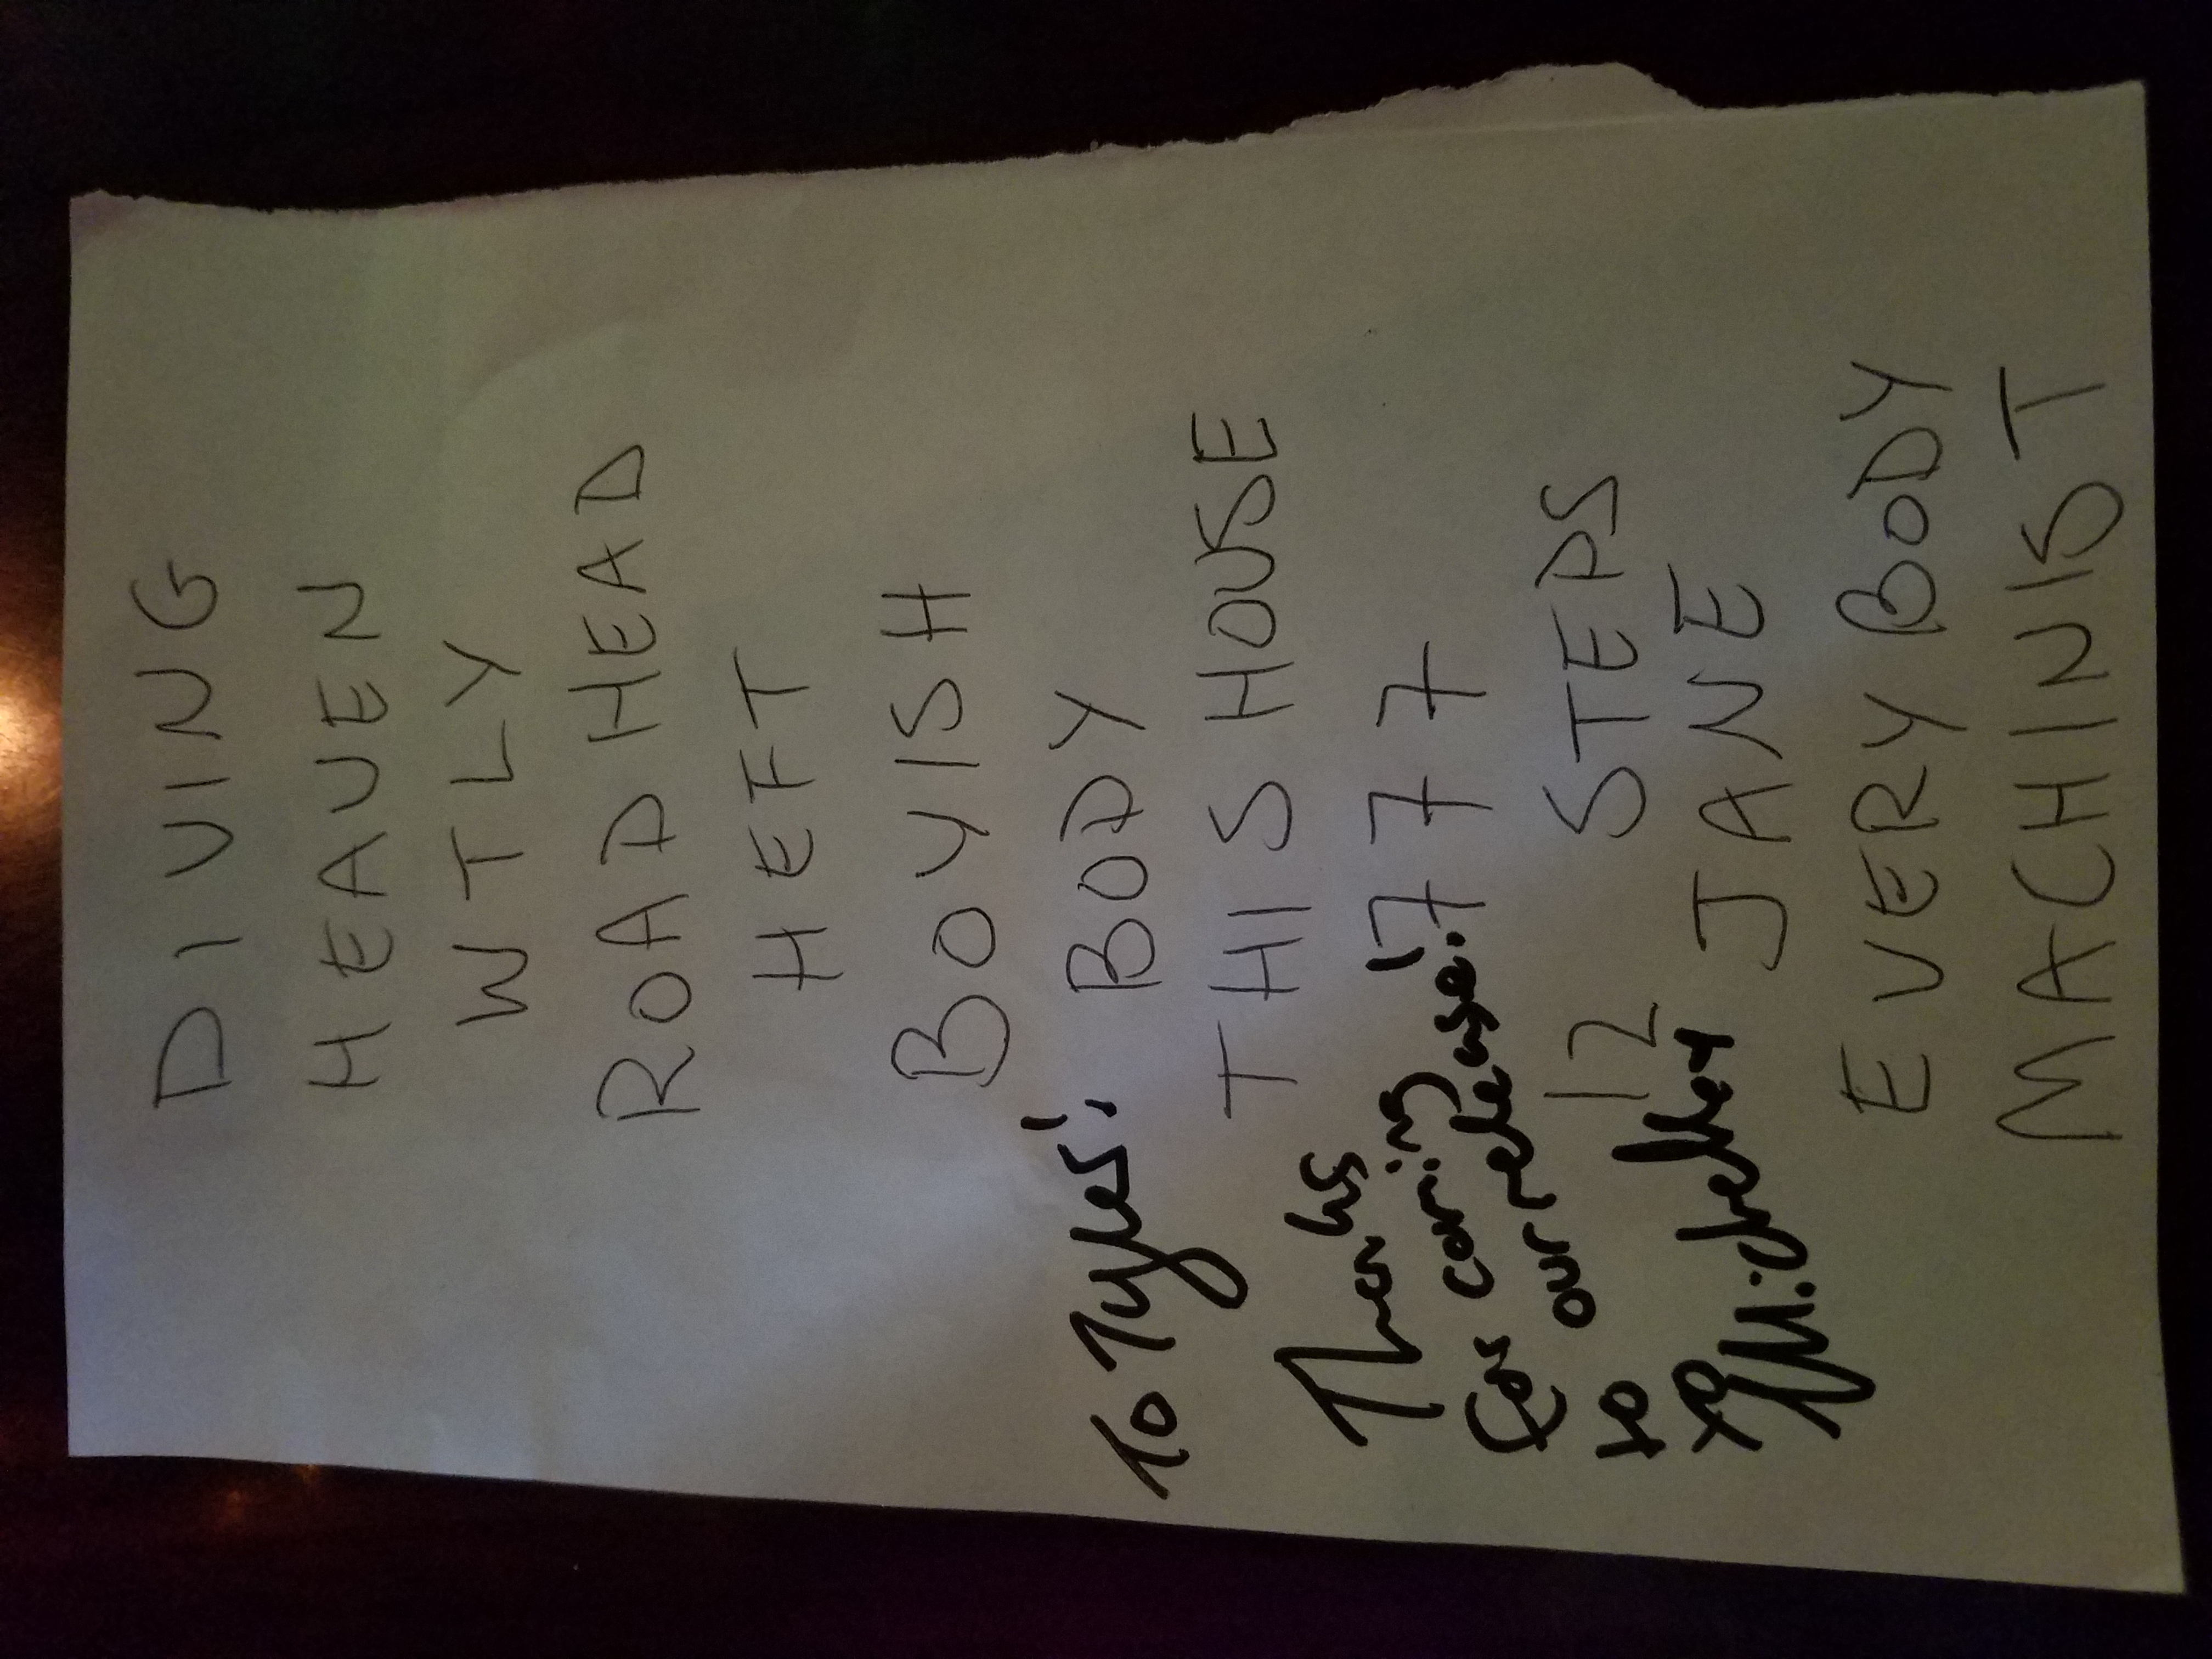 DIVING
HEAVEN
WTLY
ROAD HEAD
HEFT
BOYISH
BODY
THIS HOUSE
777
12 STEPS
JANE
EVERYBODY
MACHINIST
To Tyler!
Thanks
for coming
to our release!
xo
Michelle